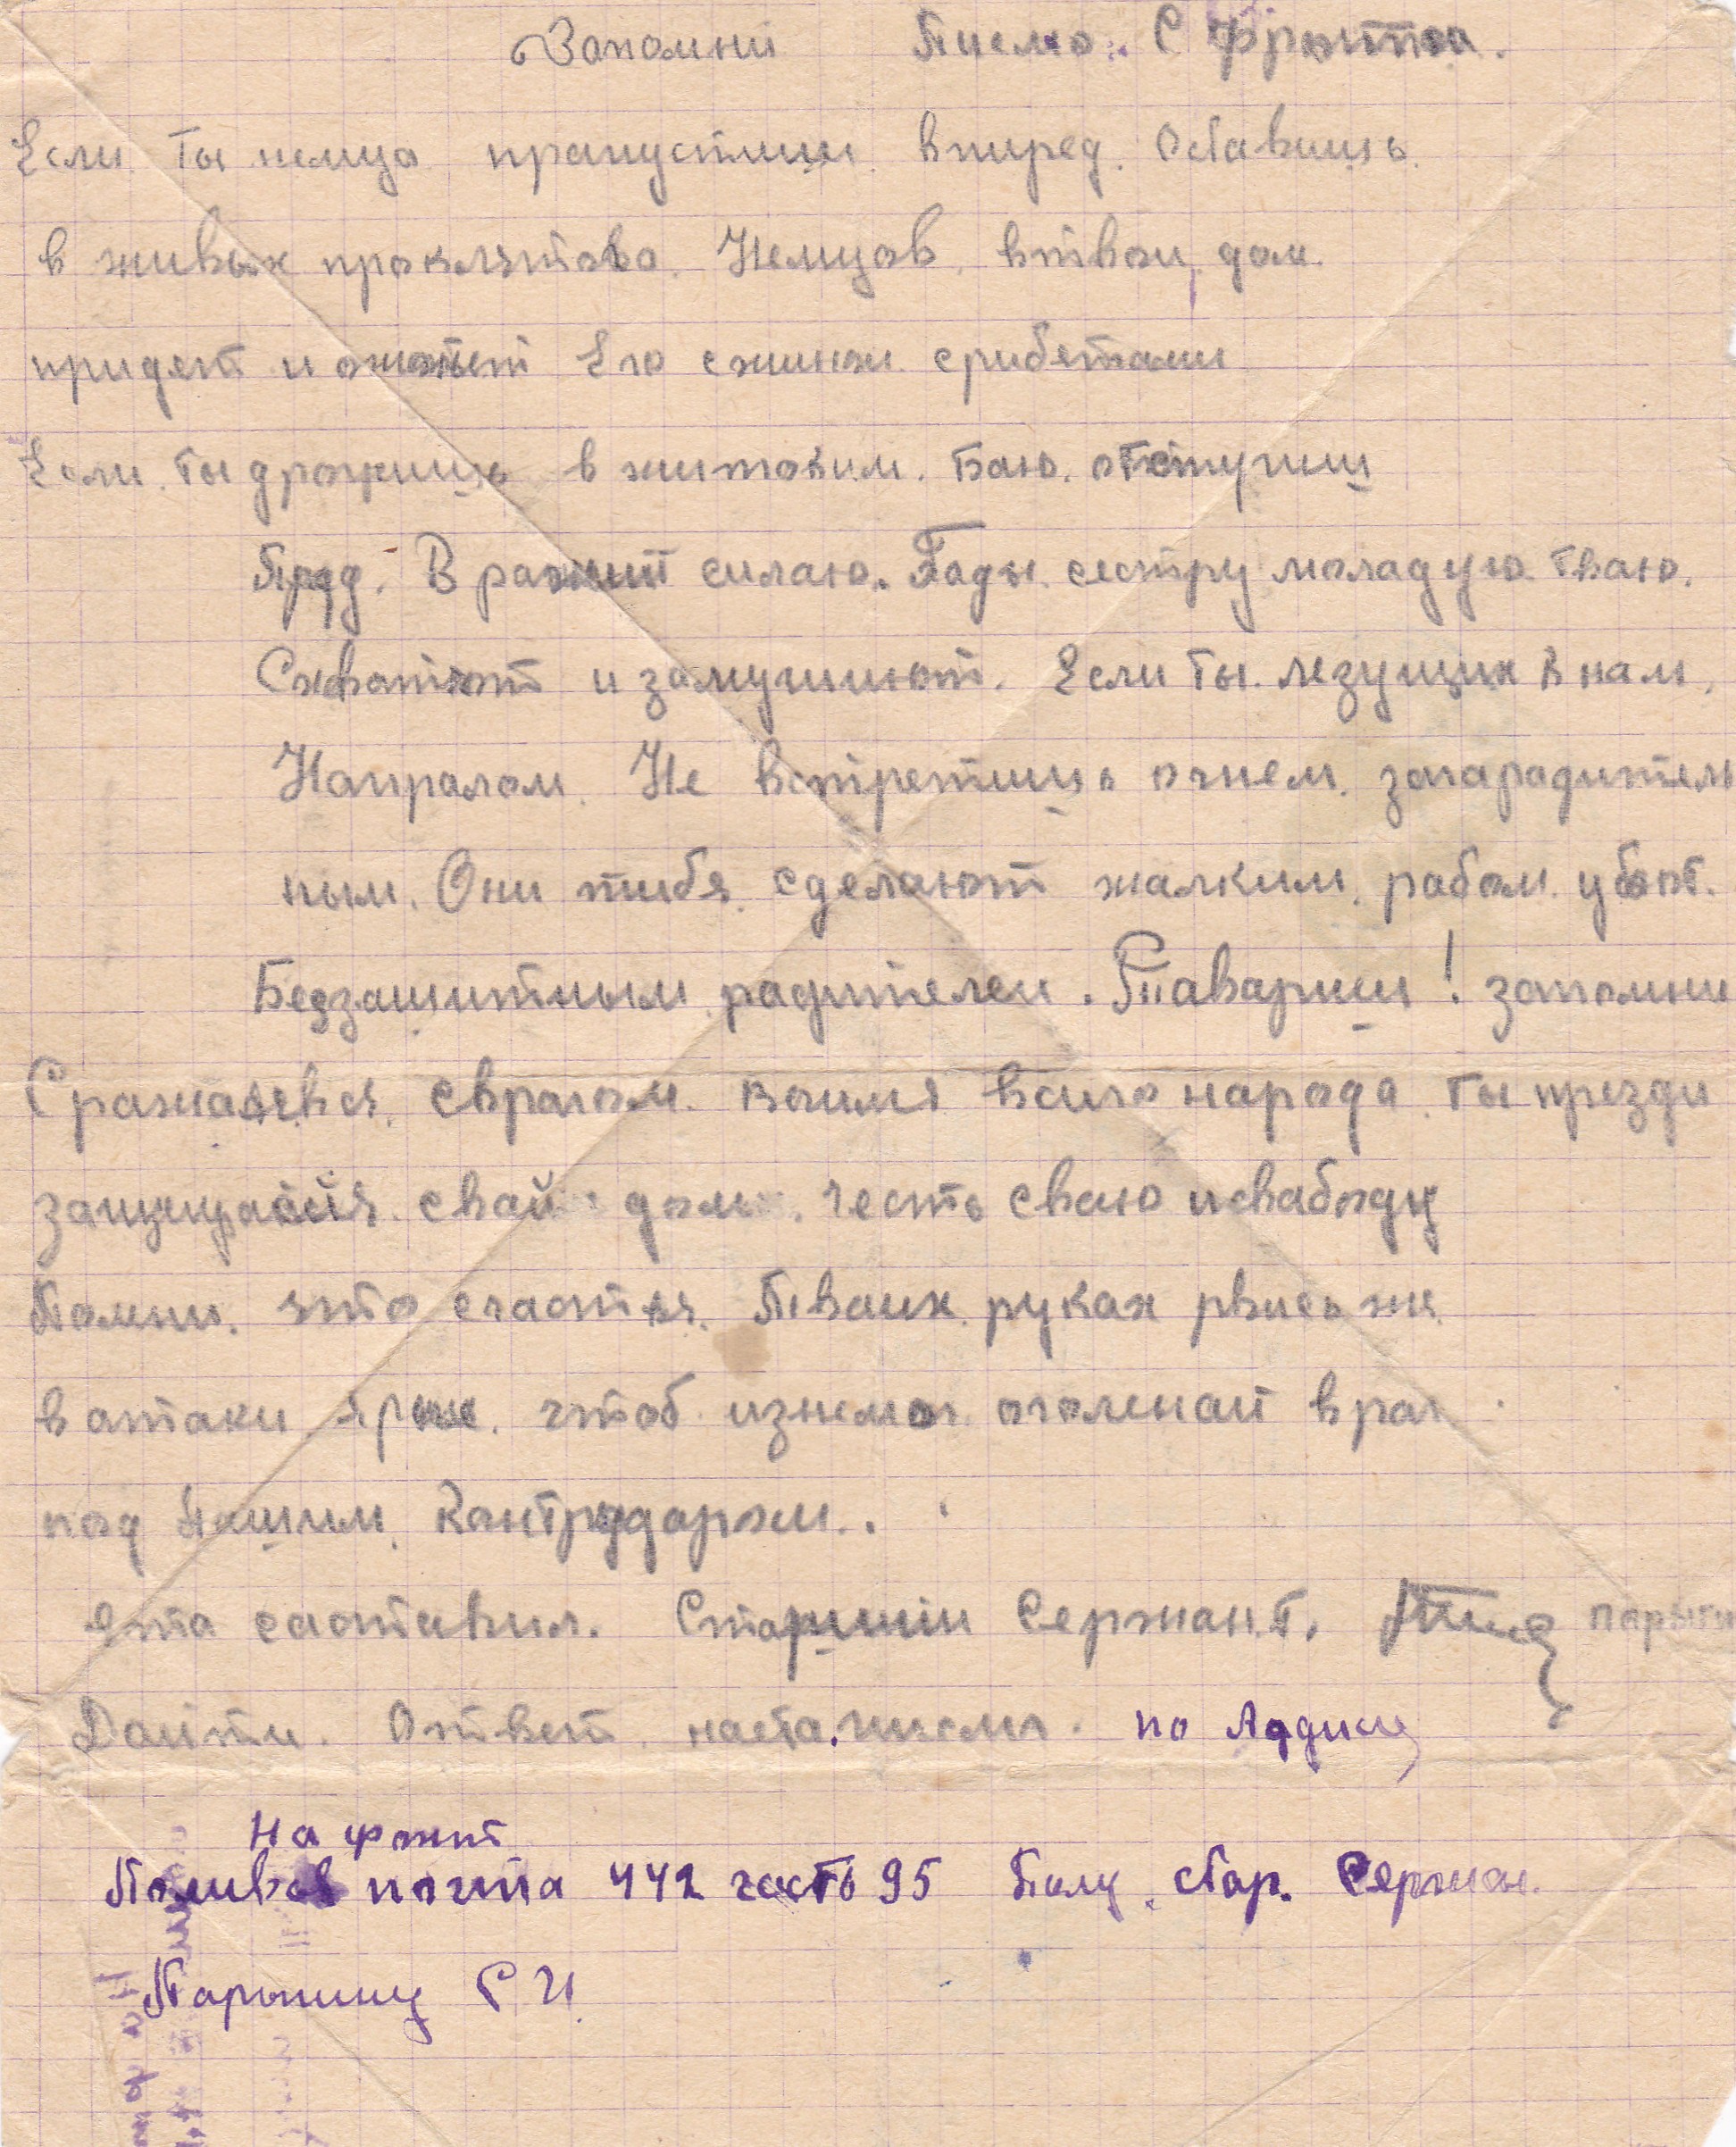 Запомни Писмо. С Фронта.
Если ты немца прапустиш впиред. Оставишь.
в живых проклятова. Немцов. втвой дом.
придет и ожжет Его сжиной срибятами
Если. ты дрожишь в житоким. баю. отступиш
Пред. В ражий силаю. Гады. сестру моладую тваю.
Схватют и замучиют. Если ты. лезущих в нам.
Напралом. Не встретишь огнем. загарадитель
ным. Они тибя. сделают жалким. рабом. убют.
Беззашитным радителей. Таварищ! запомни
Сражаяевся. сврагом. воимя всиго народа. ты прэзди
защищайся. свай дом. честь сваю исвабоду
Помни. что счастья. Тваих руках рвись же
в атаки ярые. чтоб изнемог. оголенай враг.
под нашим. Контрударом..
ета саставил. Старшии Сержант. парыги
Даити. Ответ. наста.писмо. по Аддису
На фронт
Поливая почта 442 часть 95 Полу. стар. Сержан.
Парыгину С И.